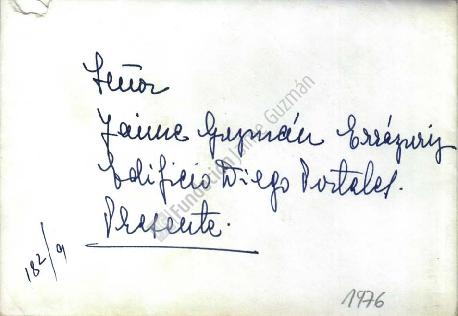 Señor
Jaime Guzmán Errázuriz
Edificio Diego Portales.
Presente.
182/9
1976
Fundación Jaime Guzmán